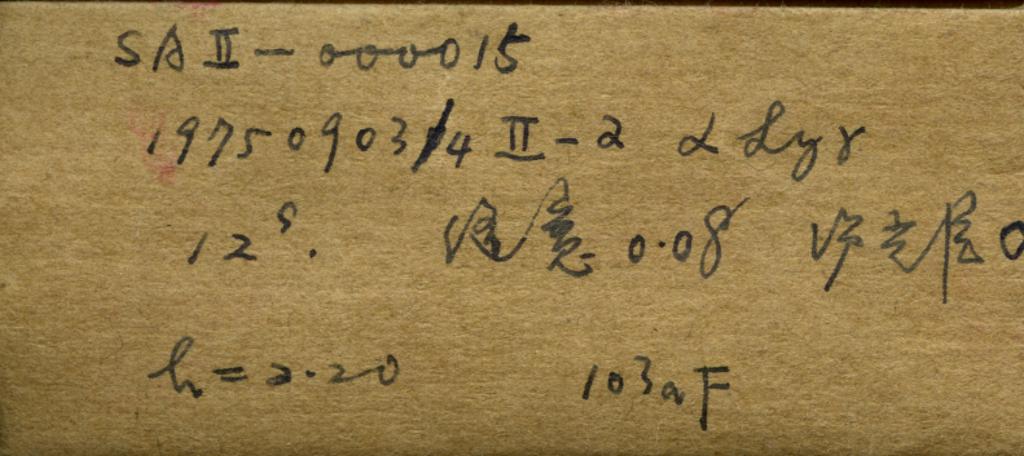 SAII-000015
19750903/4 II-2 α Lyr
12ˢ. 缝宽 0.08
h=2.20 103aF